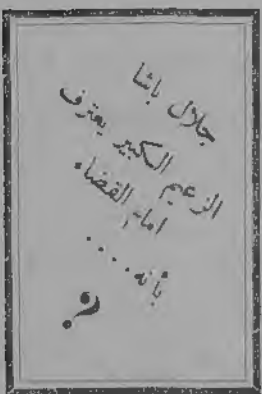 جلال باشا
الزعيم الكبير يعترف
امام القضاء
بأنه ....
؟